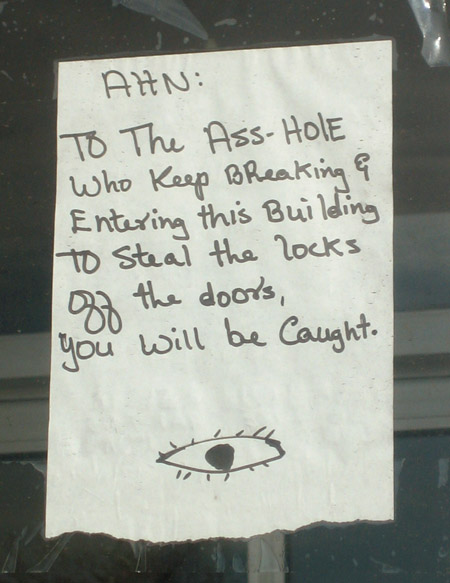 AHN:
TO The ASS-HOLE
Who Keep BReaking &
Entering this Building
TO Steal the locks
Off the doors,
You will be Caught.